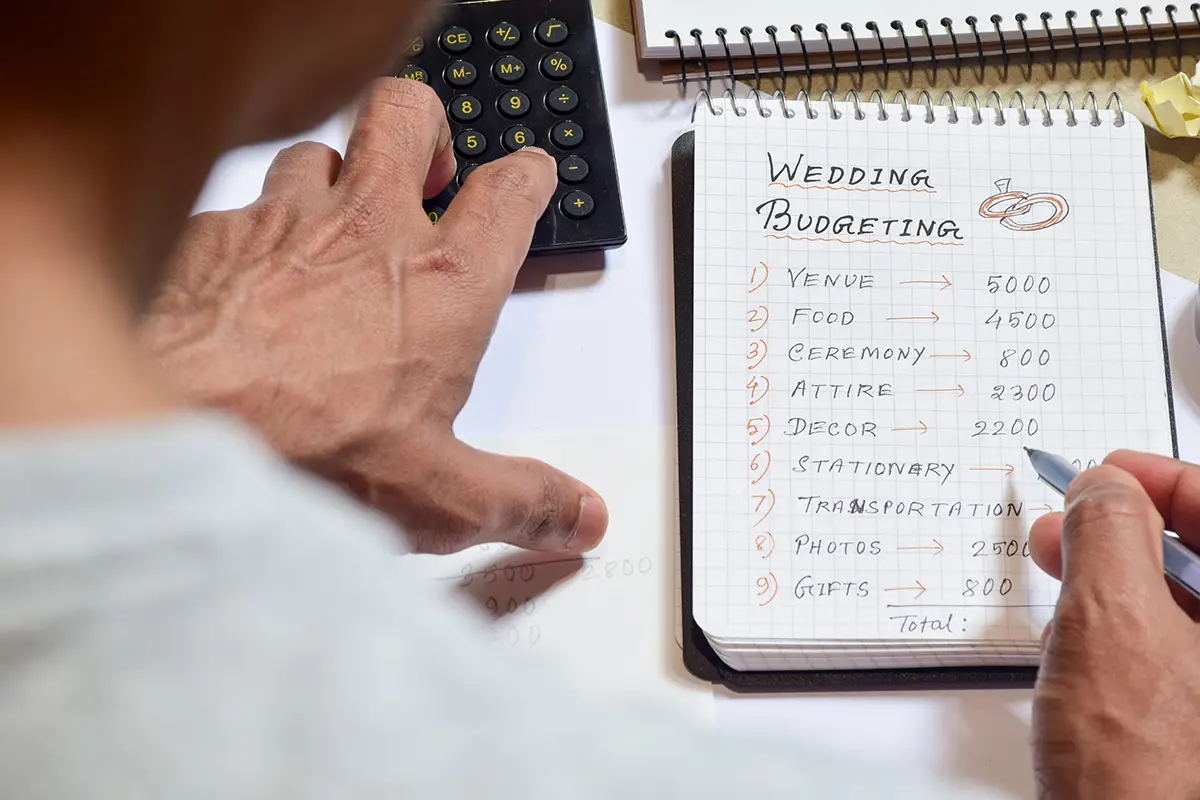 CE +/- √
MR M- M+ %
8 9 ÷
5 6 ×
-
0 +
WEDDING
BUDGETING
1) VENUE → 5000
2) FOOD → 4500
3) CEREMONY → 800
4) ATTIRE → 2300
5) DECOR → 2200
6) STATIONERY →
7) TRANSPORTATION →
8) PHOTOS → 2500
9) GIFTS → 800
Total:
2800
900